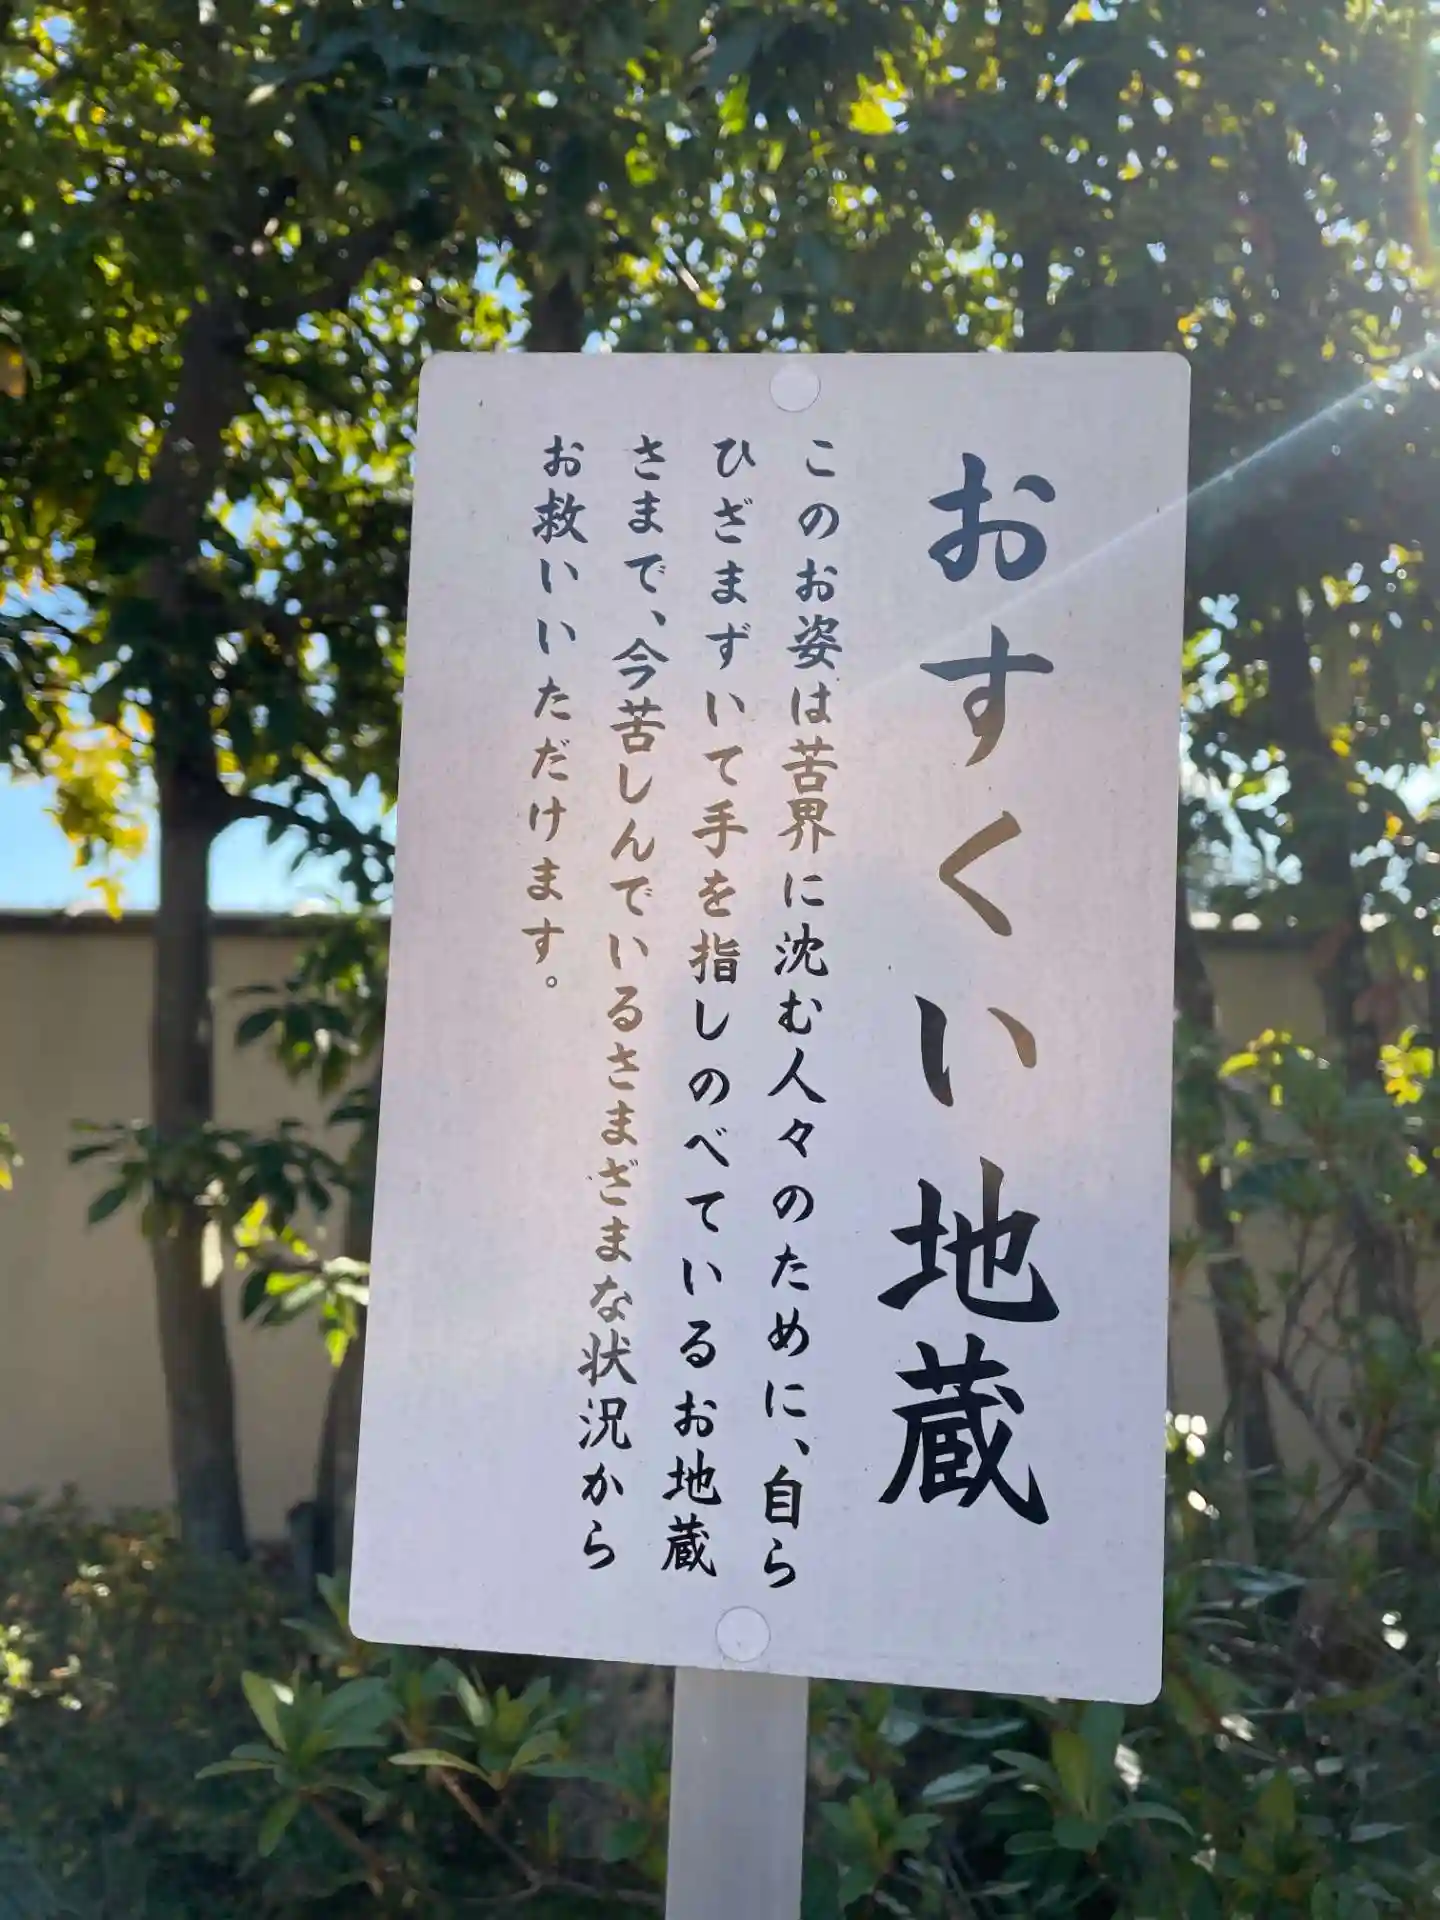 おすくい地蔵
このお姿は苦界に沈む人々のために、自ら
ひざまずいて手を指しのべているお地蔵
さまで、今苦しんでいるさまざまな状況から
お救いいただけます。